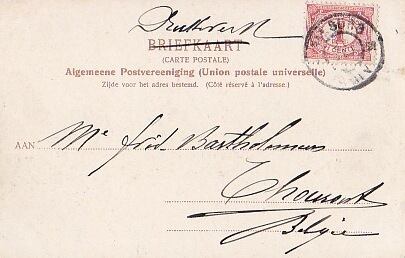 Drukwerk
BRIEFKAART
(CARTE POSTALE)
Algemeene Postvereeniging (Union postale universelle)
Zijde voor het adres bestemd. (Côté réservé à l'adresse.)
AAN Me fréd. Bartholomeus
Thourout
Belgie